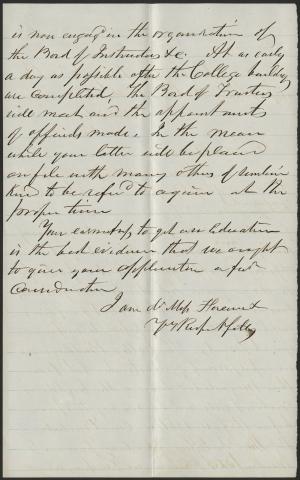 is now engag'd in the organization of
the Board of Instructors &c. At as early
a day as possible after the College buildings
are completed, the Board of Trustees
will meet and the appointments
of officers made. In the mean
while your letter will be placed
on file with many others of similar
kind to be refer'd to again at the
proper time
Your earnestness to get an Education
is the best evidence that we ought
to give your application a fair
consideration
I am dr Miss Florence
Yrs